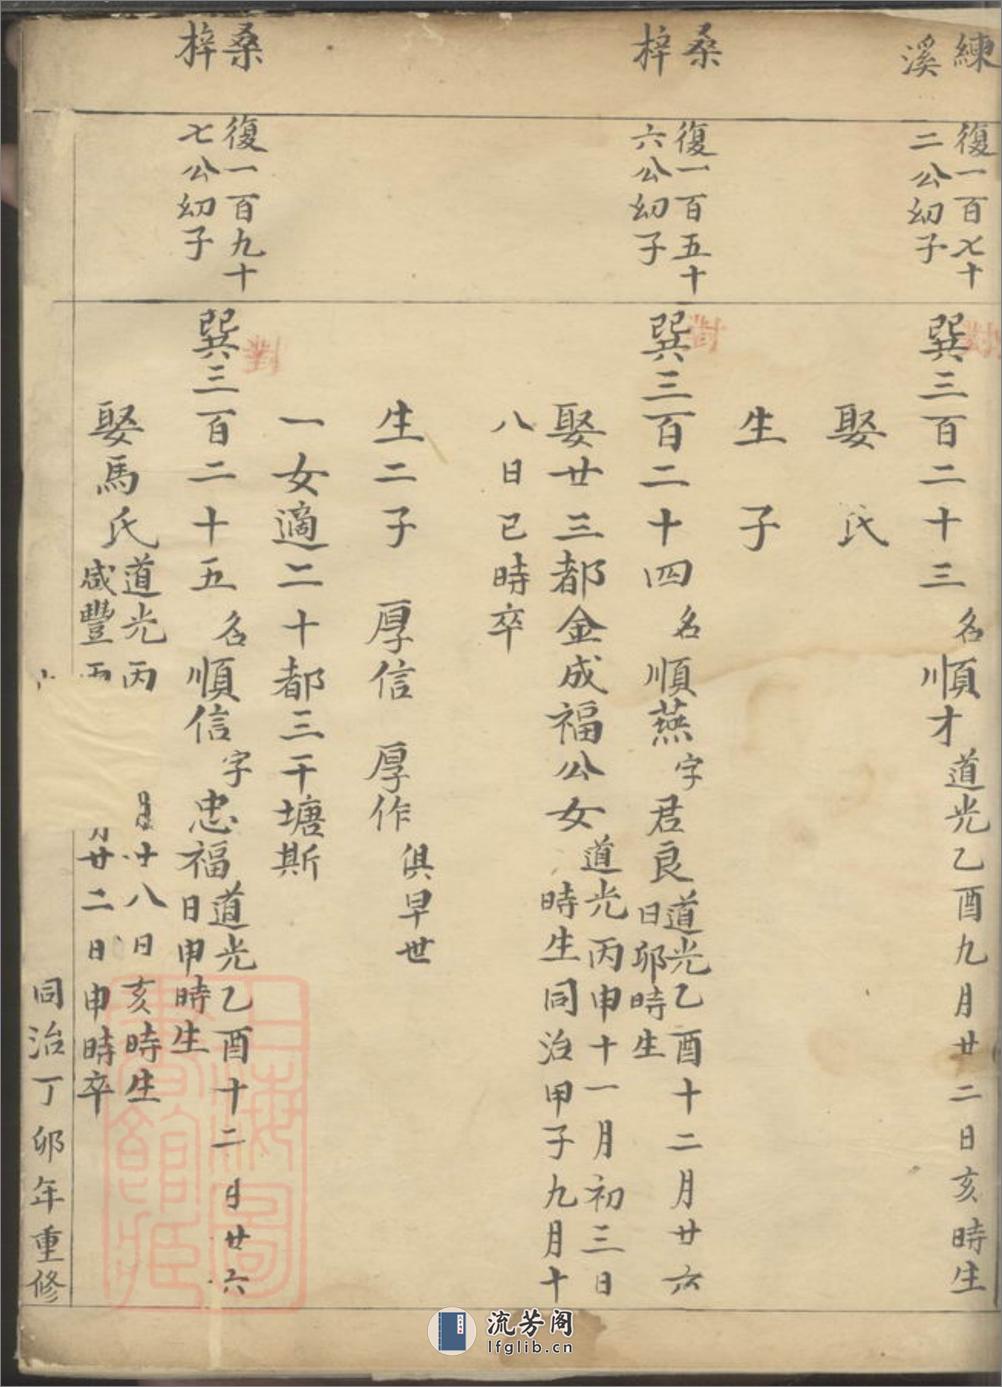 練溪
復一百七十二公幼子
巽三百二十三 名順才 道光乙酉九月廿二日亥時生
娶 氏
生 子
桑梓
復一百五十六公幼子
巽三百二十四 名順燕 字君良 道光乙酉十二月廿六日卯時生
娶廿三都金成福公女 道光丙申十一月初三日時生同治甲子九月十
八日巳時卒
生二子 厚信 厚作 俱早世
一女適二十都三干塘斯
桑梓
復一百九十七公幼子
巽三百二十五 名順信 字忠福 道光乙酉十二月廿六日申時生
娶馬氏 道光丙 月十八日亥時生
咸豐丙 月廿二日申時卒
同治丁卯年重修
對
對
對
上海圖書館藏
流芳阁
lfglib.cn